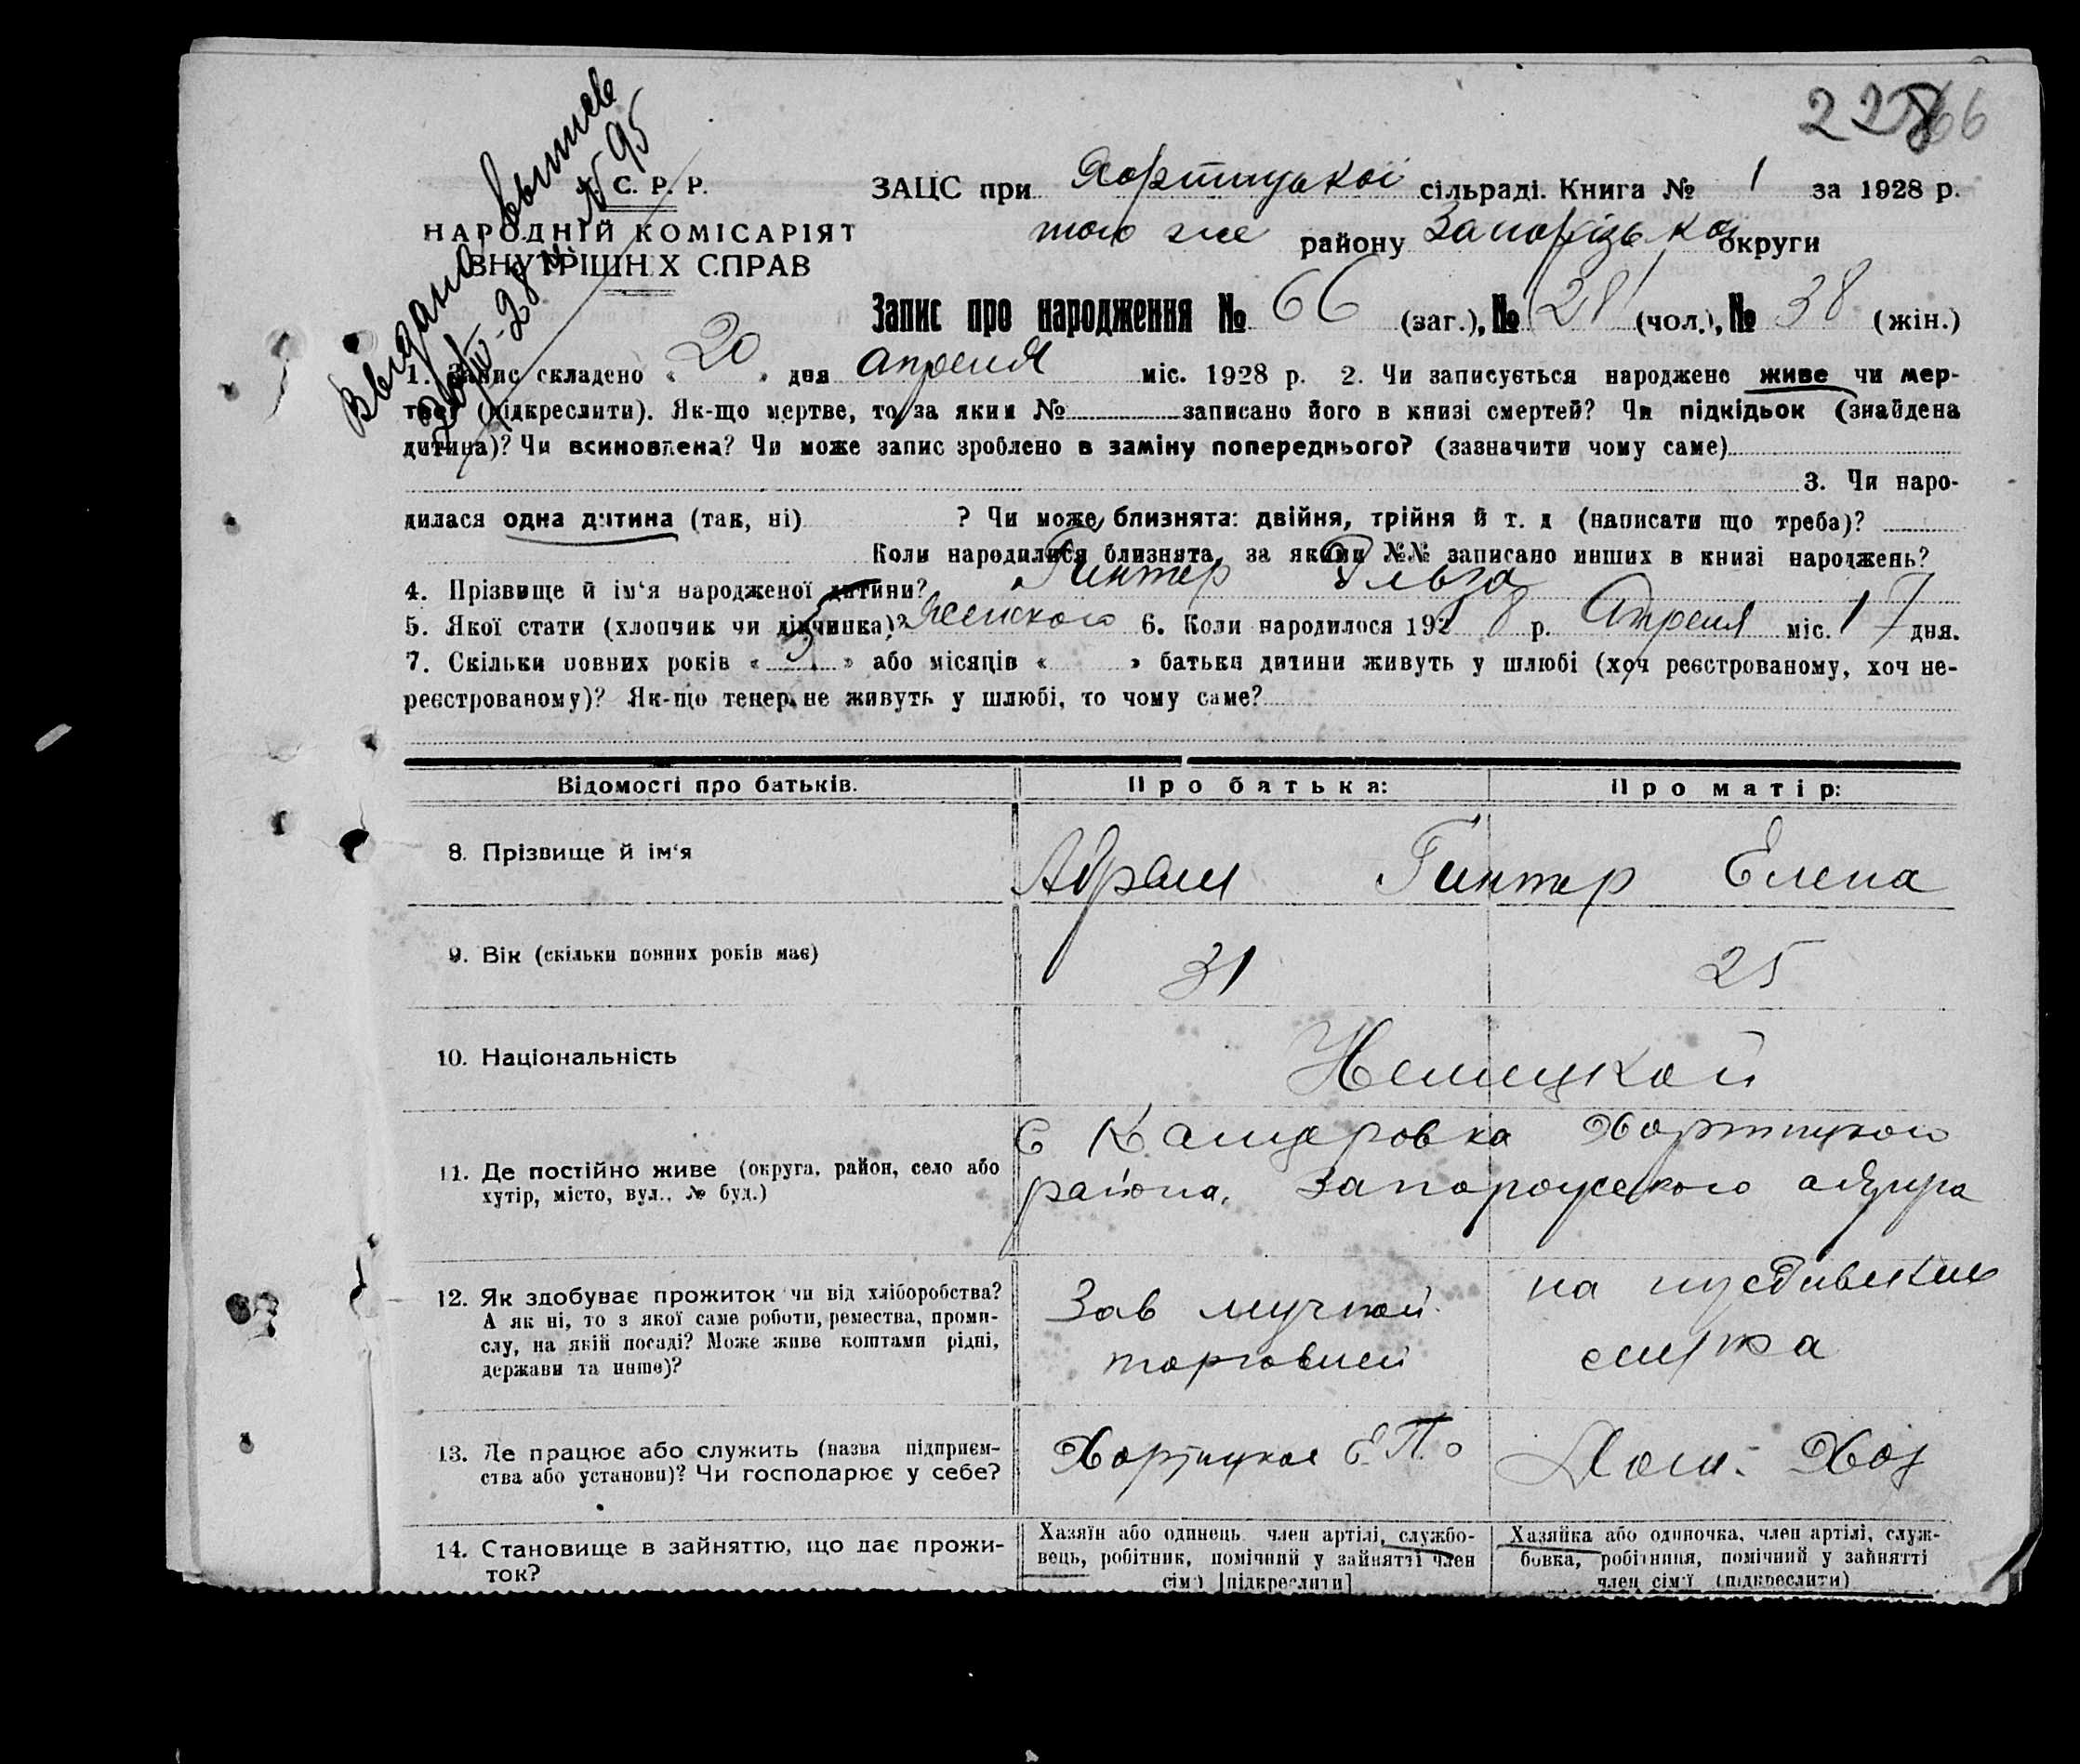 22866
Выдано выпись
20/IV-28 г. № 95
У. С. Р. Р.
НАРОДНІЙ КОМІСАРІЯТ
ВНУТРІШНІХ СПРАВ
ЗАЦС при Хортицької сільраді. Книга № 1 за 1928 р.
того же району Запорізької округи
Запис про народження № 66 (заг.), № 28 (чол.), № 38 (жін.)
1. Запис складено « 20 » дня апреля міс. 1928 р. 2. Чи записується народжене живе чи мер-
тве? (підкреслити). Як-що мертве, то за яким № записано його в книзі смертей? Чи підкідьок (знайдена
дитина)? Чи всиновлена? Чи може запис зроблено в заміну попереднього? (зазначити чому саме)
3. Чи наро-
дилася одна дитина (так, ні) ? Чи може близнята: двійня, трійня й т. д (написати що треба)?
Коли народилися близнята, за якими №№ записано инших в книзі народжень?
4. Прізвище й ім'я народженої дитини? Гинтер Эльза
5. Якої стати (хлопчик чи дівчинка)? Женского 6. Коли народилося 1928 р. Апреля міс. 17 дня.
7. Скільки повних років « 5 » або місяців « » батьки дитини живуть у шлюбі (хоч реєстрованому, хоч не-
реєстрованому)? Як-що тепер не живуть у шлюбі, то чому саме?
Відомості про батьків. Про батька: Про матір:
8. Прізвище й ім'я Абрам Гинтер Елена
9. Вік (скільки повних років має) 31 25
10. Національність Немецкой
11. Де постійно живе (округа, район, село або
хутір, місто, вул., № буд.)
С Канцеровка Хортицкого
района, Запорожского округа
12. Як здобуває прожиток чи від хліборобства?
А як ні, то з якої саме роботи, ремества, проми-
слу, на якій посаді? Може живе коштами рідні,
держави та инше)?
Зав мучной
торговлей
на иждивении
мужа
13. Де працює або служить (назва підприєм-
ства або установи)? Чи господарює у себе?
Хортицкое Е.П.о
Дом. Хоз
14. Становище в зайняттю, що дає прожи-
ток?
Хазяїн або одинець, член артілі, службо-
вець, робітник, помічний у зайнятті член
сім'ї [підкреслити]
Хазяйка або одиночка, член артілі, служ-
бовка, робітниця, помічний у зайнятті
член сім'ї (підкреслити)